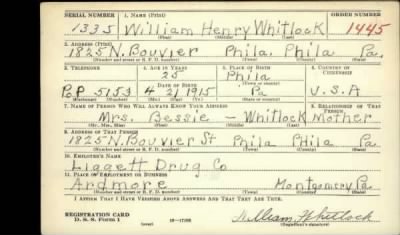 SERIAL NUMBER 1. NAME (Print) ORDER NUMBER
1335 William Henry Whitlock 1445
(First) (Middle) (Last)
2. ADDRESS (Print)
1825 N. Bouvier Phila. Phila Pa.
(Number and street or R. F. D. number) (Town) (County) (State)
3. TELEPHONE 4. AGE IN YEARS 5. PLACE OF BIRTH 6. COUNTRY OF CITIZENSHIP
25 Phila
DATE OF BIRTH
PoP 5153 4 21 1915 Pa U.S.A
(Exchange) (Number) (Mo.) (Day) (Yr.) (State or country)
7. NAME OF PERSON WHO WILL ALWAYS KNOW YOUR ADDRESS 8. RELATIONSHIP OF THAT PERSON
Mrs. Bessie — Whitlock Mother
(Mr., Mrs., Miss) (First) (Middle) (Last)
9. ADDRESS OF THAT PERSON
1825 N. Bouvier St Phila PHila Pa
(Number and street or R. F. D. number) (Town) (County) (State)
10. EMPLOYER'S NAME
Liggett Drug Co
11. PLACE OF EMPLOYMENT OR BUSINESS
Ardmore Montgomery Pa
(Number and street or R. F. D. number) (Town) (County) (State)
I AFFIRM THAT I HAVE VERIFIED ABOVE ANSWERS AND THAT THEY ARE TRUE.
REGISTRATION CARD
D. S. S. Form 1 (over) 16—17105 William H Whitlock
(Registrant's signature)